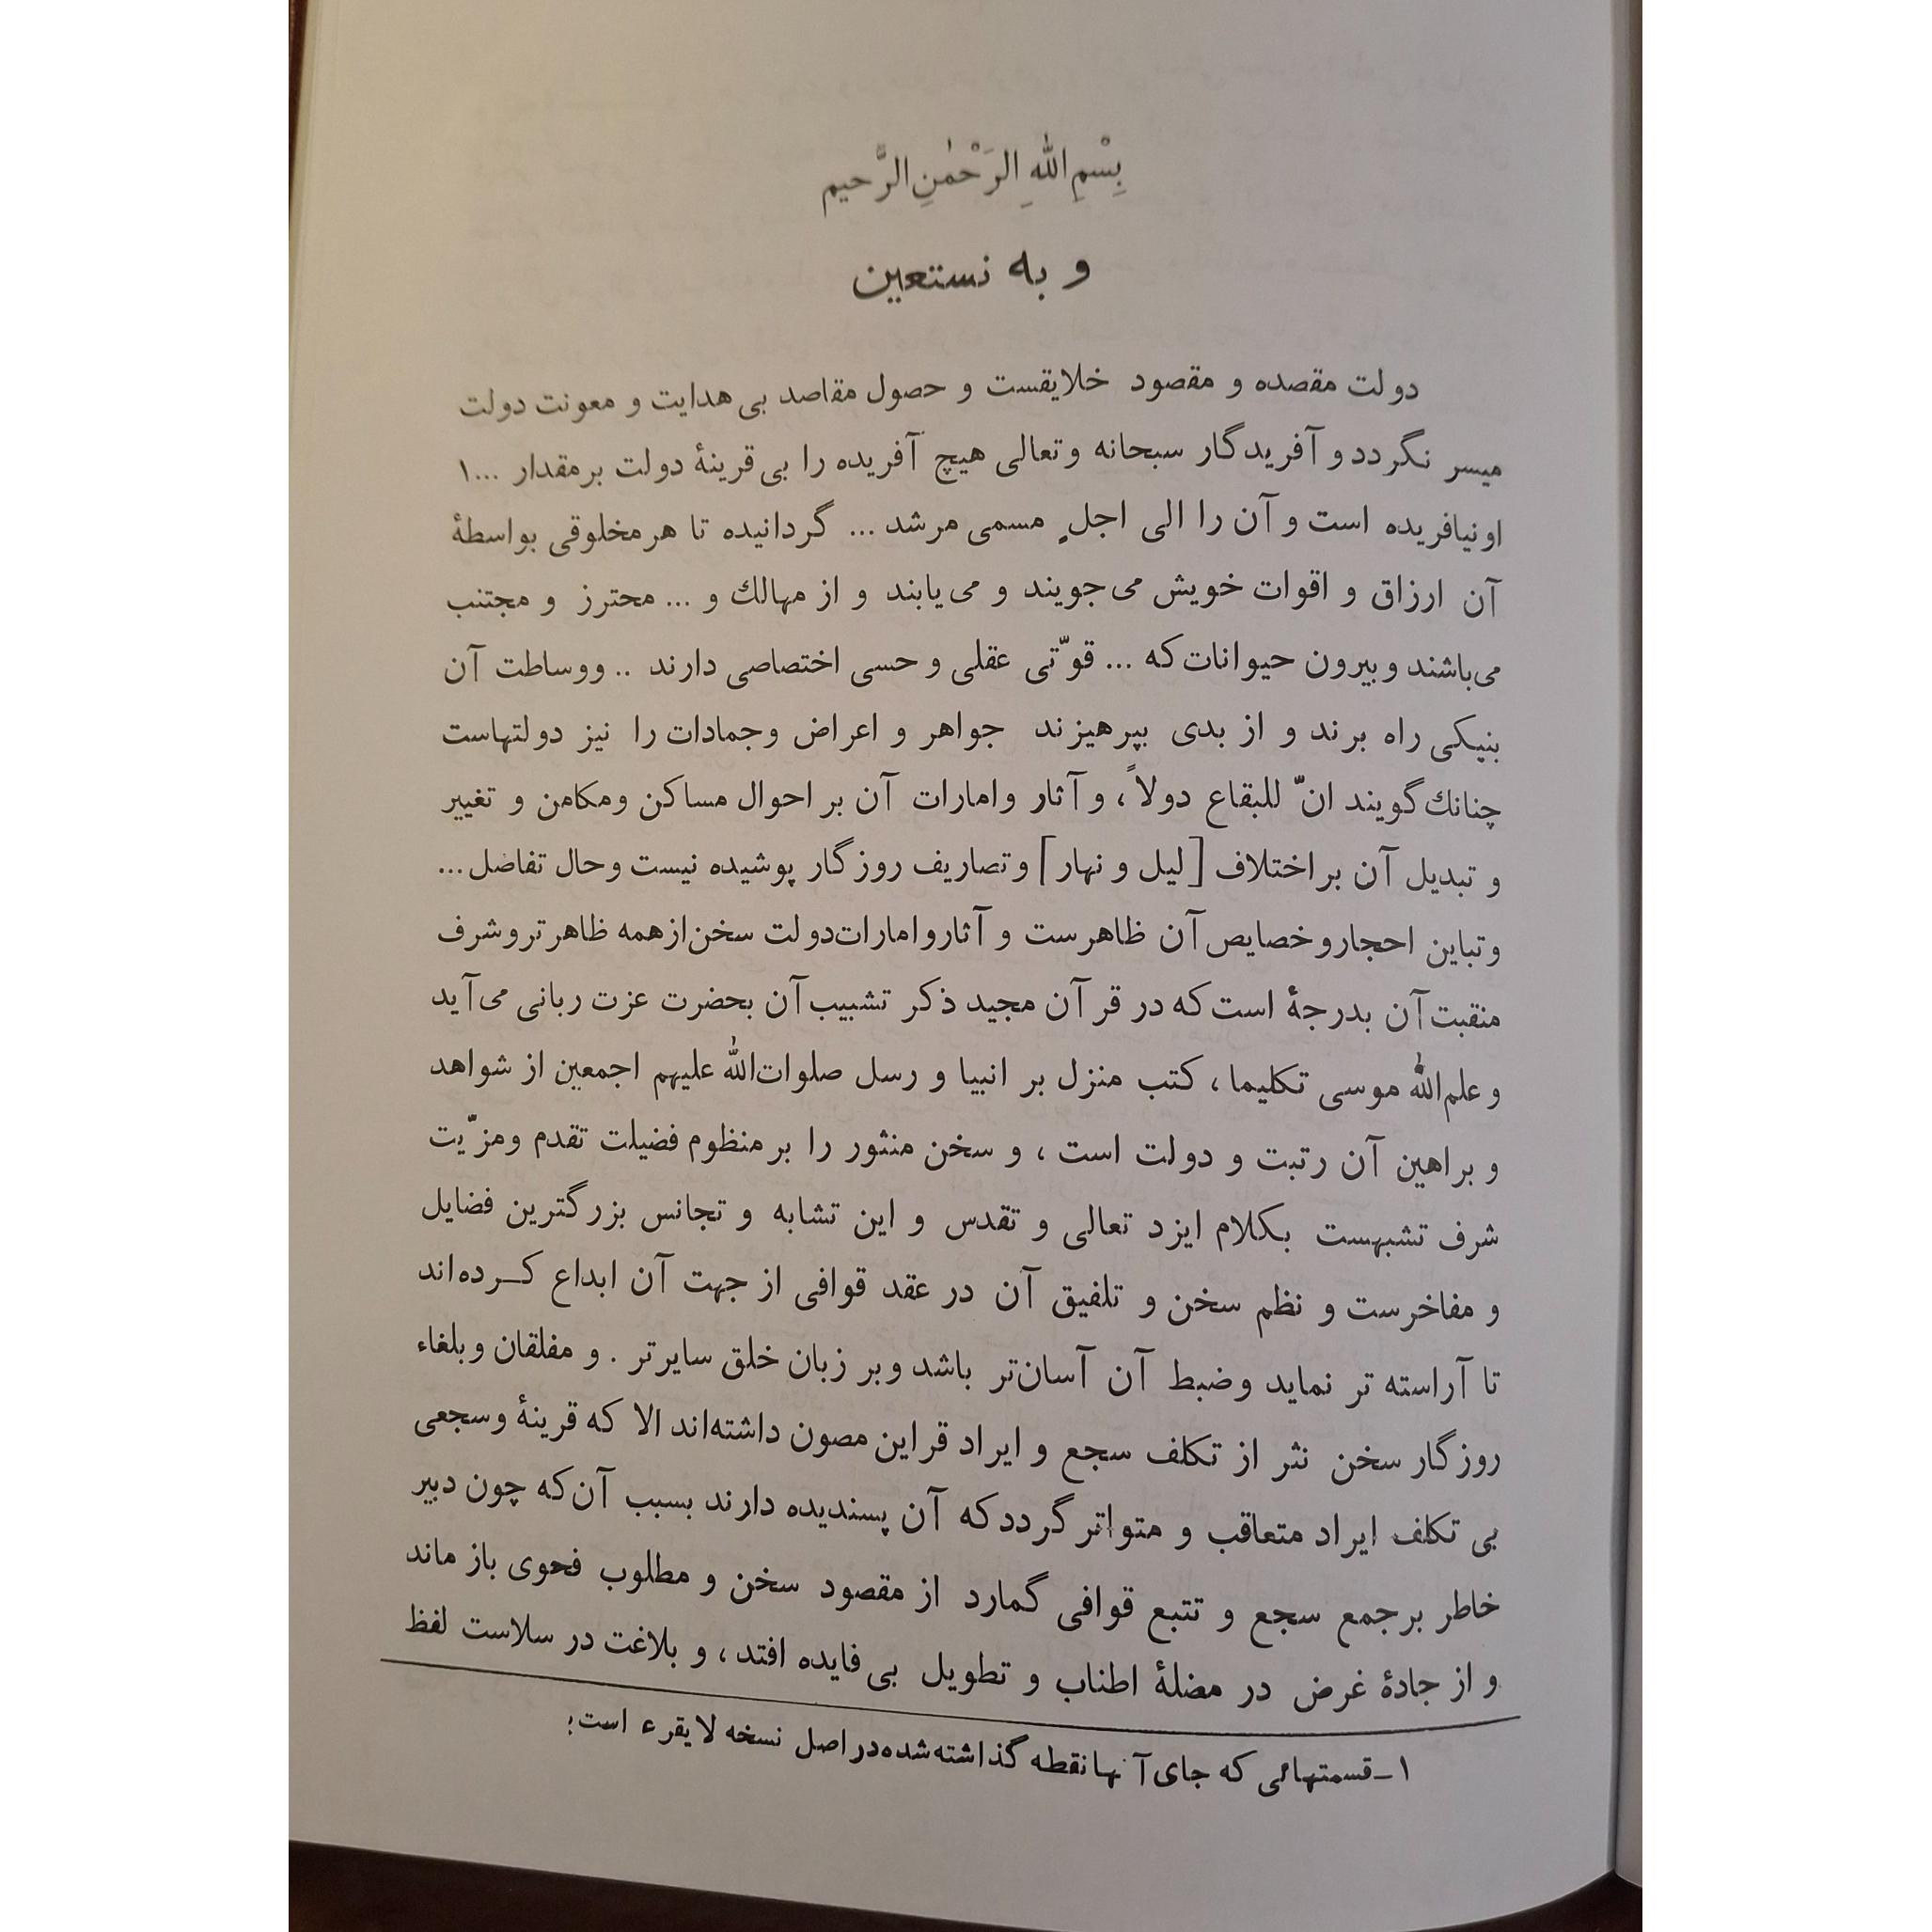 بِسْمِ اللّٰهِ الرَحْمٰنِ الرَّحیم
و به نستعین
دولت مقصده و مقصود خلایقست و حصول مقاصد بی هدایت و معونت دولت
میسر نگردد و آفریدگار سبحانه و تعالی هیچ آفریده را بی قرینهٔ دولت بر مقدار ...۱
او نیافریده است و آن را الی اجلٍ مسمی مرشد ... گردانیده تا هر مخلوقی بواسطهٔ
آن ارزاق و اقوات خویش می جویند و می یابند و از مهالك و ... محترز و مجتنب
می‌باشند و بیرون حیوانات که ... قوّتی عقلی و حسی اختصاصی دارند .. و وساطت آن
بنیکی راه برند و از بدی بپرهیزند جواهر و اعراض و جمادات را نیز دولتهاست
چنانك گویند انّ للبقاع دولاً ، و آثار و امارات آن بر احوال مساکن و مکامن و تغییر
و تبدیل آن بر اختلاف [لیل و نهار] و تصاریف روزگار پوشیده نیست و حال تفاضل ...
و تباین احجار و خصایص آن ظاهرست و آثار و امارات دولت سخن از همه ظاهرتر و شرف
منقبت آن بدرجهٔ است که در قرآن مجید ذکر تشبیب آن بحضرت عزت ربانی می آید
و علم اللّٰه موسی تکلیما ، کتب منزل بر انبیا و رسل صلوات اللّٰه علیهم اجمعین از شواهد
و براهین آن رتبت و دولت است ، و سخن منثور را بر منظوم فضیلت تقدم و مزّیت
شرف تشبهست بکلام ایزد تعالی و تقدس و این تشابه و تجانس بزرگترین فضایل
و مفاخرست و نظم سخن و تلفیق آن در عقد قوافی از جهت آن ابداع کـرده‌اند
تا آراسته تر نماید و ضبط آن آسان‌تر باشد و بر زبان خلق سایرتر . و مفلقان و بلغاء
روزگار سخن نثر از تکلف سجع و ایراد قراین مصون داشته‌اند الا که قرینهٔ و سجعی
بی تکلف ایراد متعاقب و متواتر گردد که آن پسندیده دارند بسبب آن‌که چون دبیر
خاطر بر جمع سجع و تتبع قوافی گمارد از مقصود سخن و مطلوب فحوی باز ماند
و از جادهٔ غرض در مضلهٔ اطناب و تطویل بی فایده افتد ، و بلاغت در سلاست لفظ
۱ـ قسمتهائی که جای آنها نقطه گذاشته شده در اصل نسخه لایقرء است؛